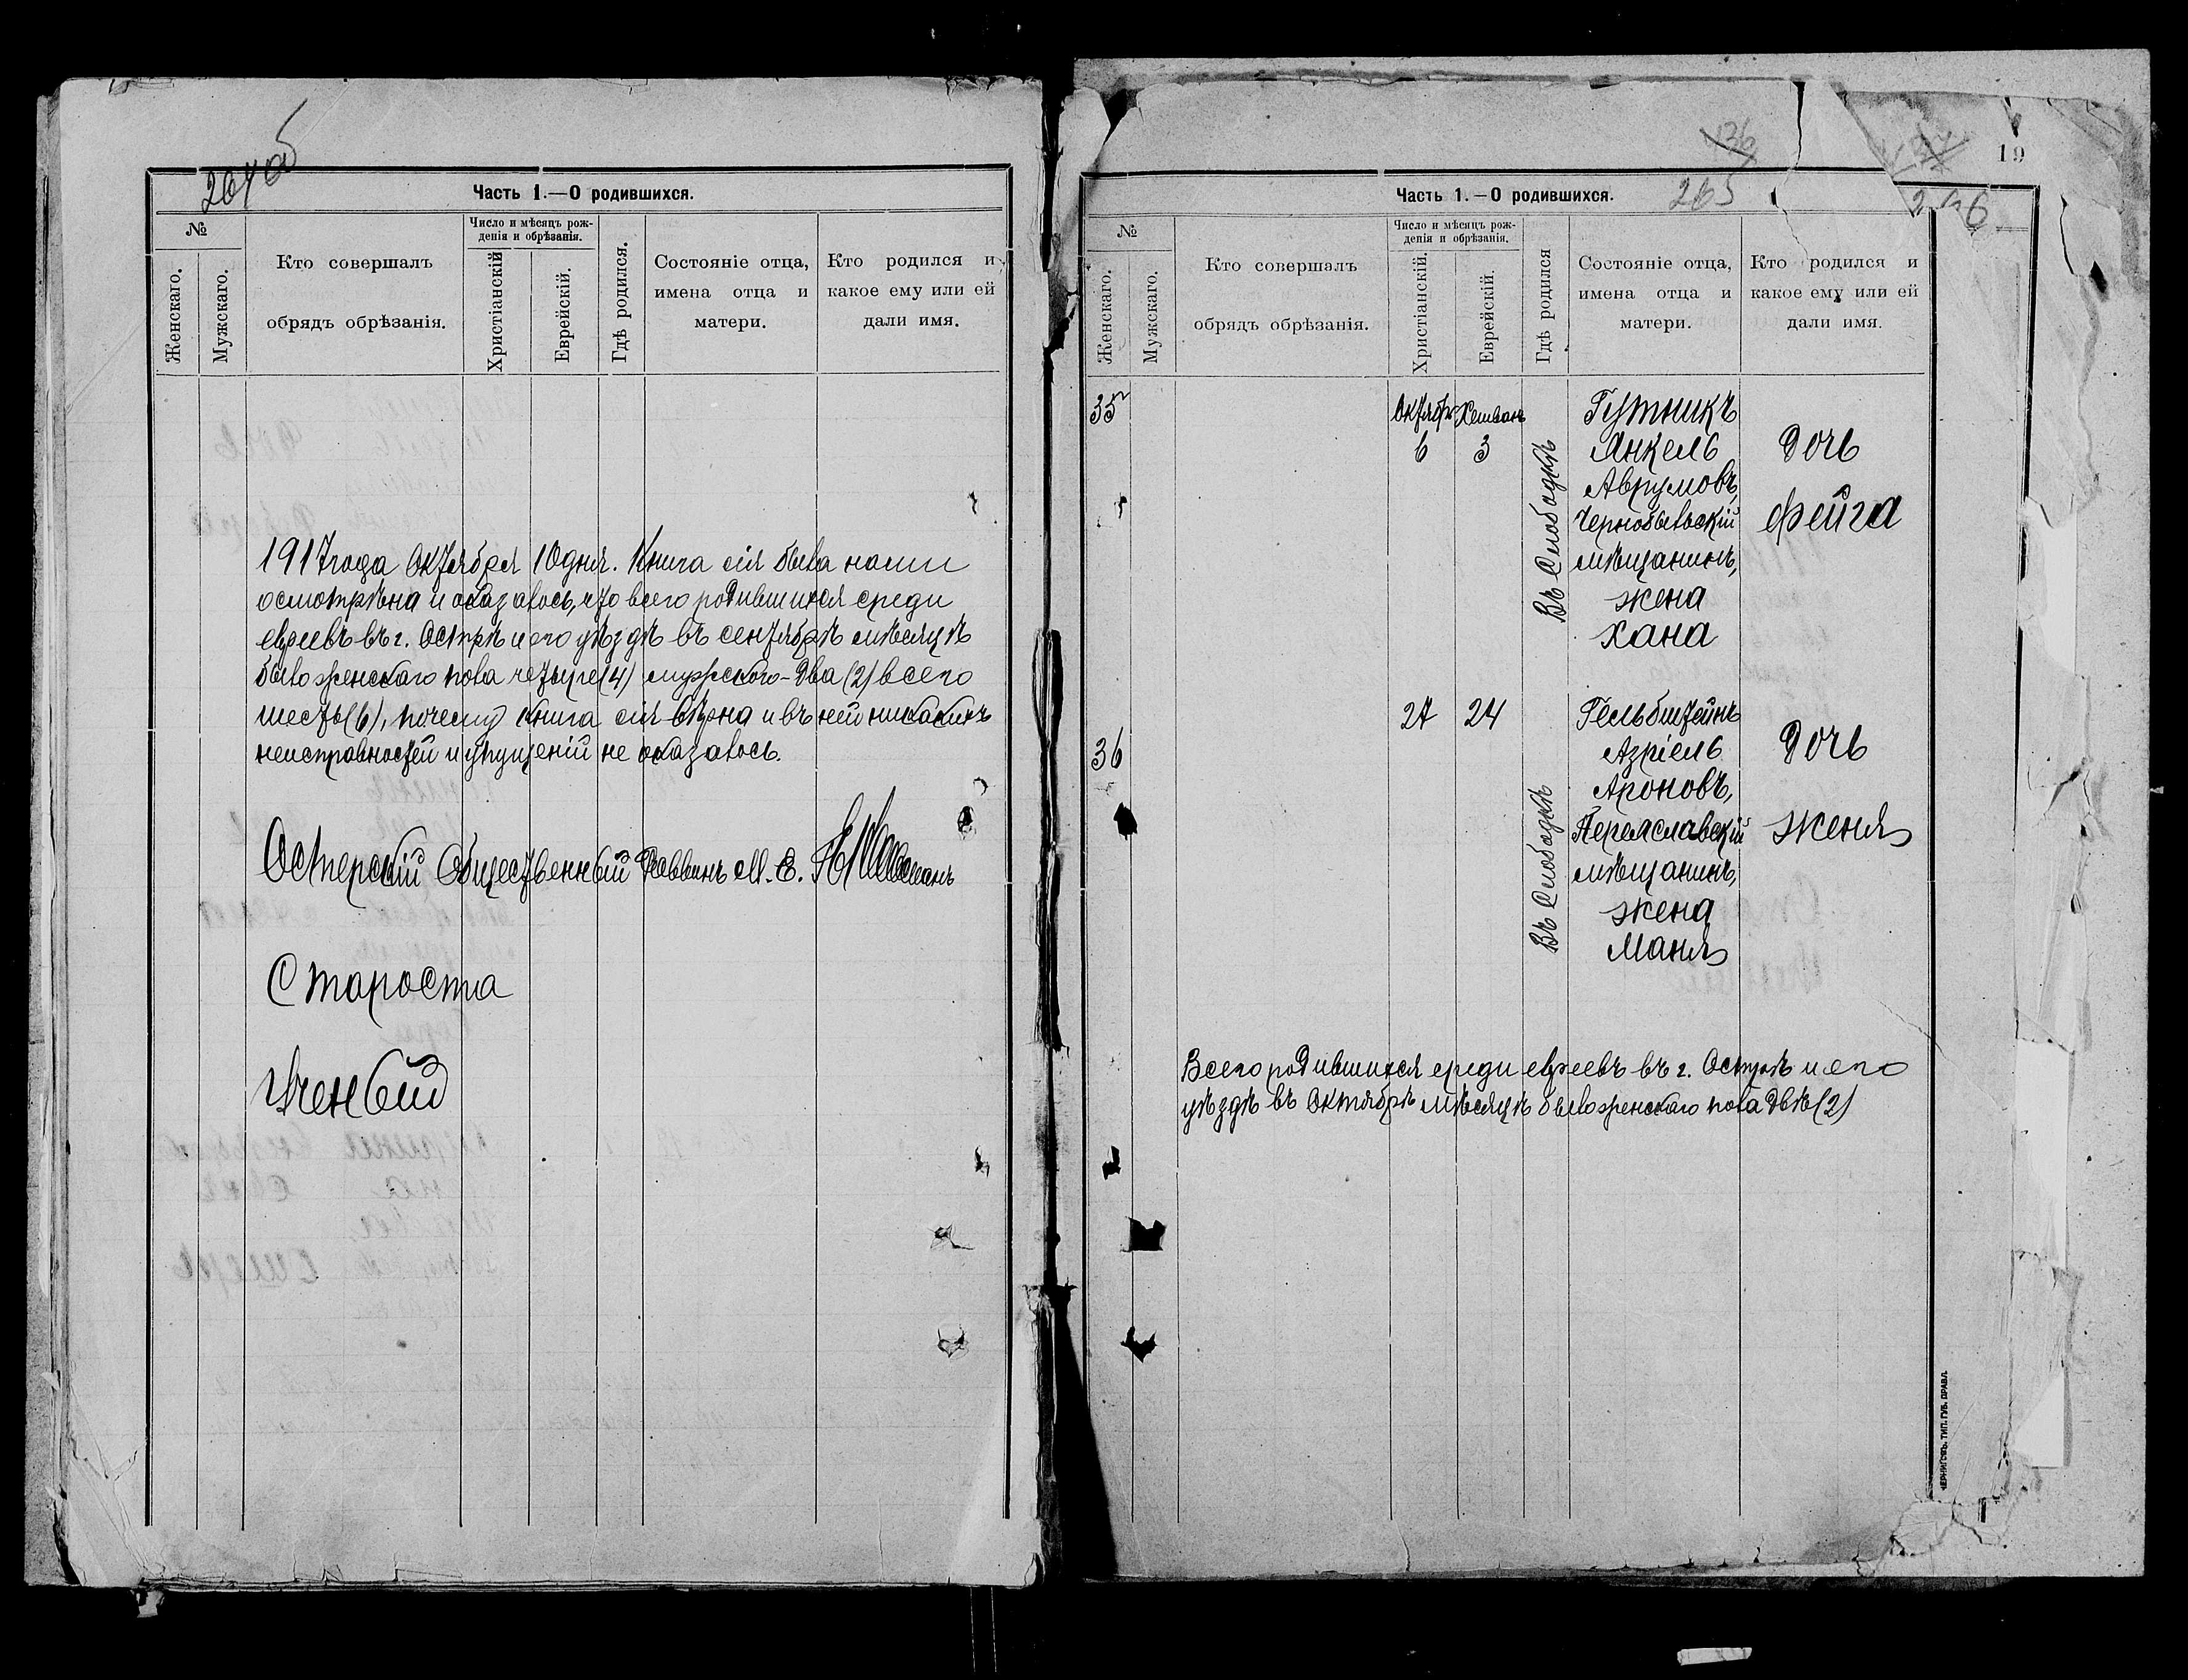 264 об
Часть 1.—О родившихся.
№
Женскаго.
Мужскаго.
Кто совершалъ
обрядъ обрѣзанія.
Число и мѣсяцъ рож-
денія и обрѣзанія.
Христіанскій
Еврейскій.
Гдѣ родился.
Состояніе отца,
имена отца и
матери.
Кто родился и
какое ему или ей
дали имя.
1917 года Октября 10 дня. Книга сія была нами
осмотрѣна и оказалось, что всего родившихся среди
евреевъ въ г. Острѣ и его уѣздѣ въ сентябрѣ мѣсяцѣ
было женскаго пола четыре (4) мужского - два (2) всего
шесть (6), почему книга сія вѣрна и въ ней никакихъ
неисправностей и упущеній не оказалось.
Остерскій Общественный Раввинъ М. Е.
Староста
Ученый
19
136
265
Часть 1.—О родившихся.
№
Женскаго.
Мужскаго.
Кто совершалъ
обрядъ обрѣзанія.
Число и мѣсяцъ рож-
денія и обрѣзанія.
Христіанскій.
Еврейскій.
Гдѣ родился
Состояніе отца,
имена отца и
матери.
Кто родился и
какое ему или ей
дали имя.
35
Октябрь Хешванъ
6 3
Въ Слободкѣ
Гутникъ
Янкель
Аврумовъ,
Чернобыльскій
мѣщанинъ,
жена
Хана
Дочь
Фейга
36
27 24
Въ Слободкѣ
Гельбштейнъ
Азріель
Ароновъ,
Переяславскій
мѣщанинъ,
жена
Маня
Дочь
Женя
Всего родившихся среди евреевъ въ г. Острѣ и его
уѣздѣ въ Октябрѣ мѣсяцѣ было женскаго пола двѣ (2)
ЧЕРНИГОВЪ. ТИП. ГУБ. ПРАВЛ.